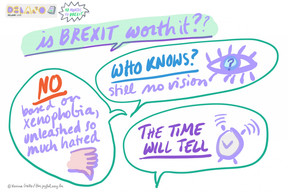 DELANO
is BREXIT worth it??
WHO KNOWS?
still no vision
?
NO
based on
xenophobia,
unleashed so
much hatred
THE TIME
WILL TELL